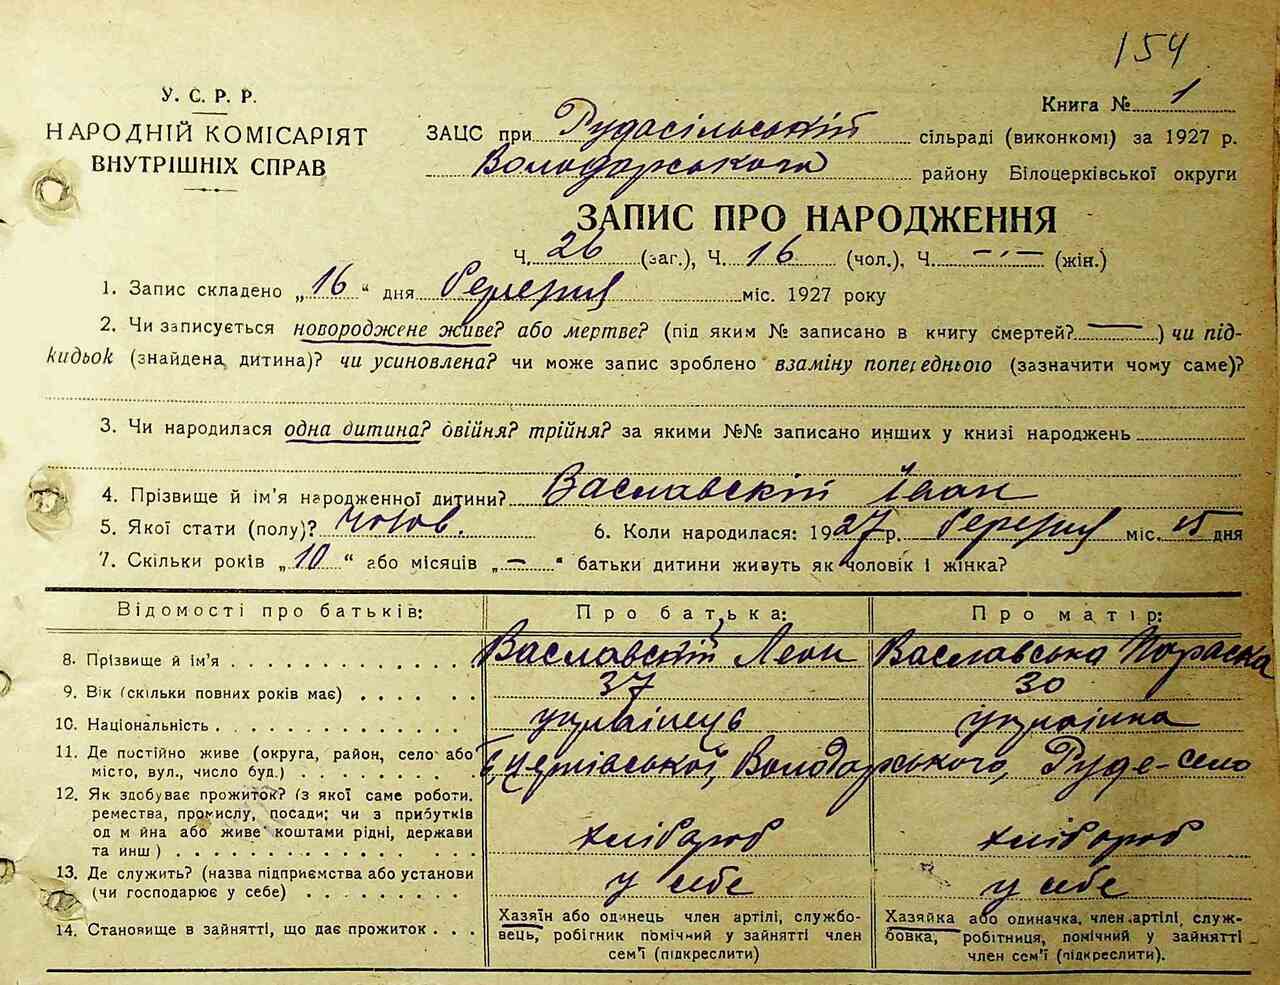 154
У. С. Р. Р.
НАРОДНІЙ КОМІСАРІЯТ
ВНУТРІШНІХ СПРАВ
Книга № 1
ЗАЦС при Рудасільській сільраді (виконкомі) за 1927 р.
Володарського району Білоцерківської округи
ЗАПИС ПРО НАРОДЖЕННЯ
Ч. 26 (заг.), Ч. 16 (чол.), Ч. — (жін.)
1. Запис складено „16“ дня березня міс. 1927 року
2. Чи записується новороджене живе? або мертве? (під яким № записано в книгу смертей? —) чи під-
кидьок (знайдена дитина)? чи усиновлена? чи може запис зроблено взаміну попереднього (зазначити чому саме)?
3. Чи народилася одна дитина? двійня? трійня? за якими №№ записано инших у книзі народжень
4. Прізвище й ім'я народженної дитини? Ваславскій Іван
5. Якої стати (полу)? чолов. 6. Коли народилася: 1927 р. березня міс. 15 дня
7. Скільки років „10“ або місяців „—“ батьки дитини живуть як чоловік і жінка?
Відомості про батьків: Про батька: Про матір:
8. Прізвище й ім'я Ваславскій Леон Ваславська Параска
9. Вік (скільки повних років має) 37 30
10. Національність українець українка
11. Де постійно живе (округа, район, село або
місто, вул., число буд.) Б, Церківської, Володарського, Руде-село
12. Як здобуває прожиток? (з якої саме роботи,
ремества, промислу, посади; чи з прибутків
од м йна або живе коштами рідні, держави
та инш) хлібороб хлібороб
13. Де служить? (назва підприємства або установи
(чи господарює у себе) у себе у себе
14. Становище в зайнятті, що дає прожиток
Хазяїн або одинець член артілі, службо-
вець, робітник помічний у зайнятті член
сем'ї (підкреслити)
Хазяйка або одиначка, член артілі, служ-
бовка, робітниця, помічний у зайнятті
член сем'ї (підкреслить).